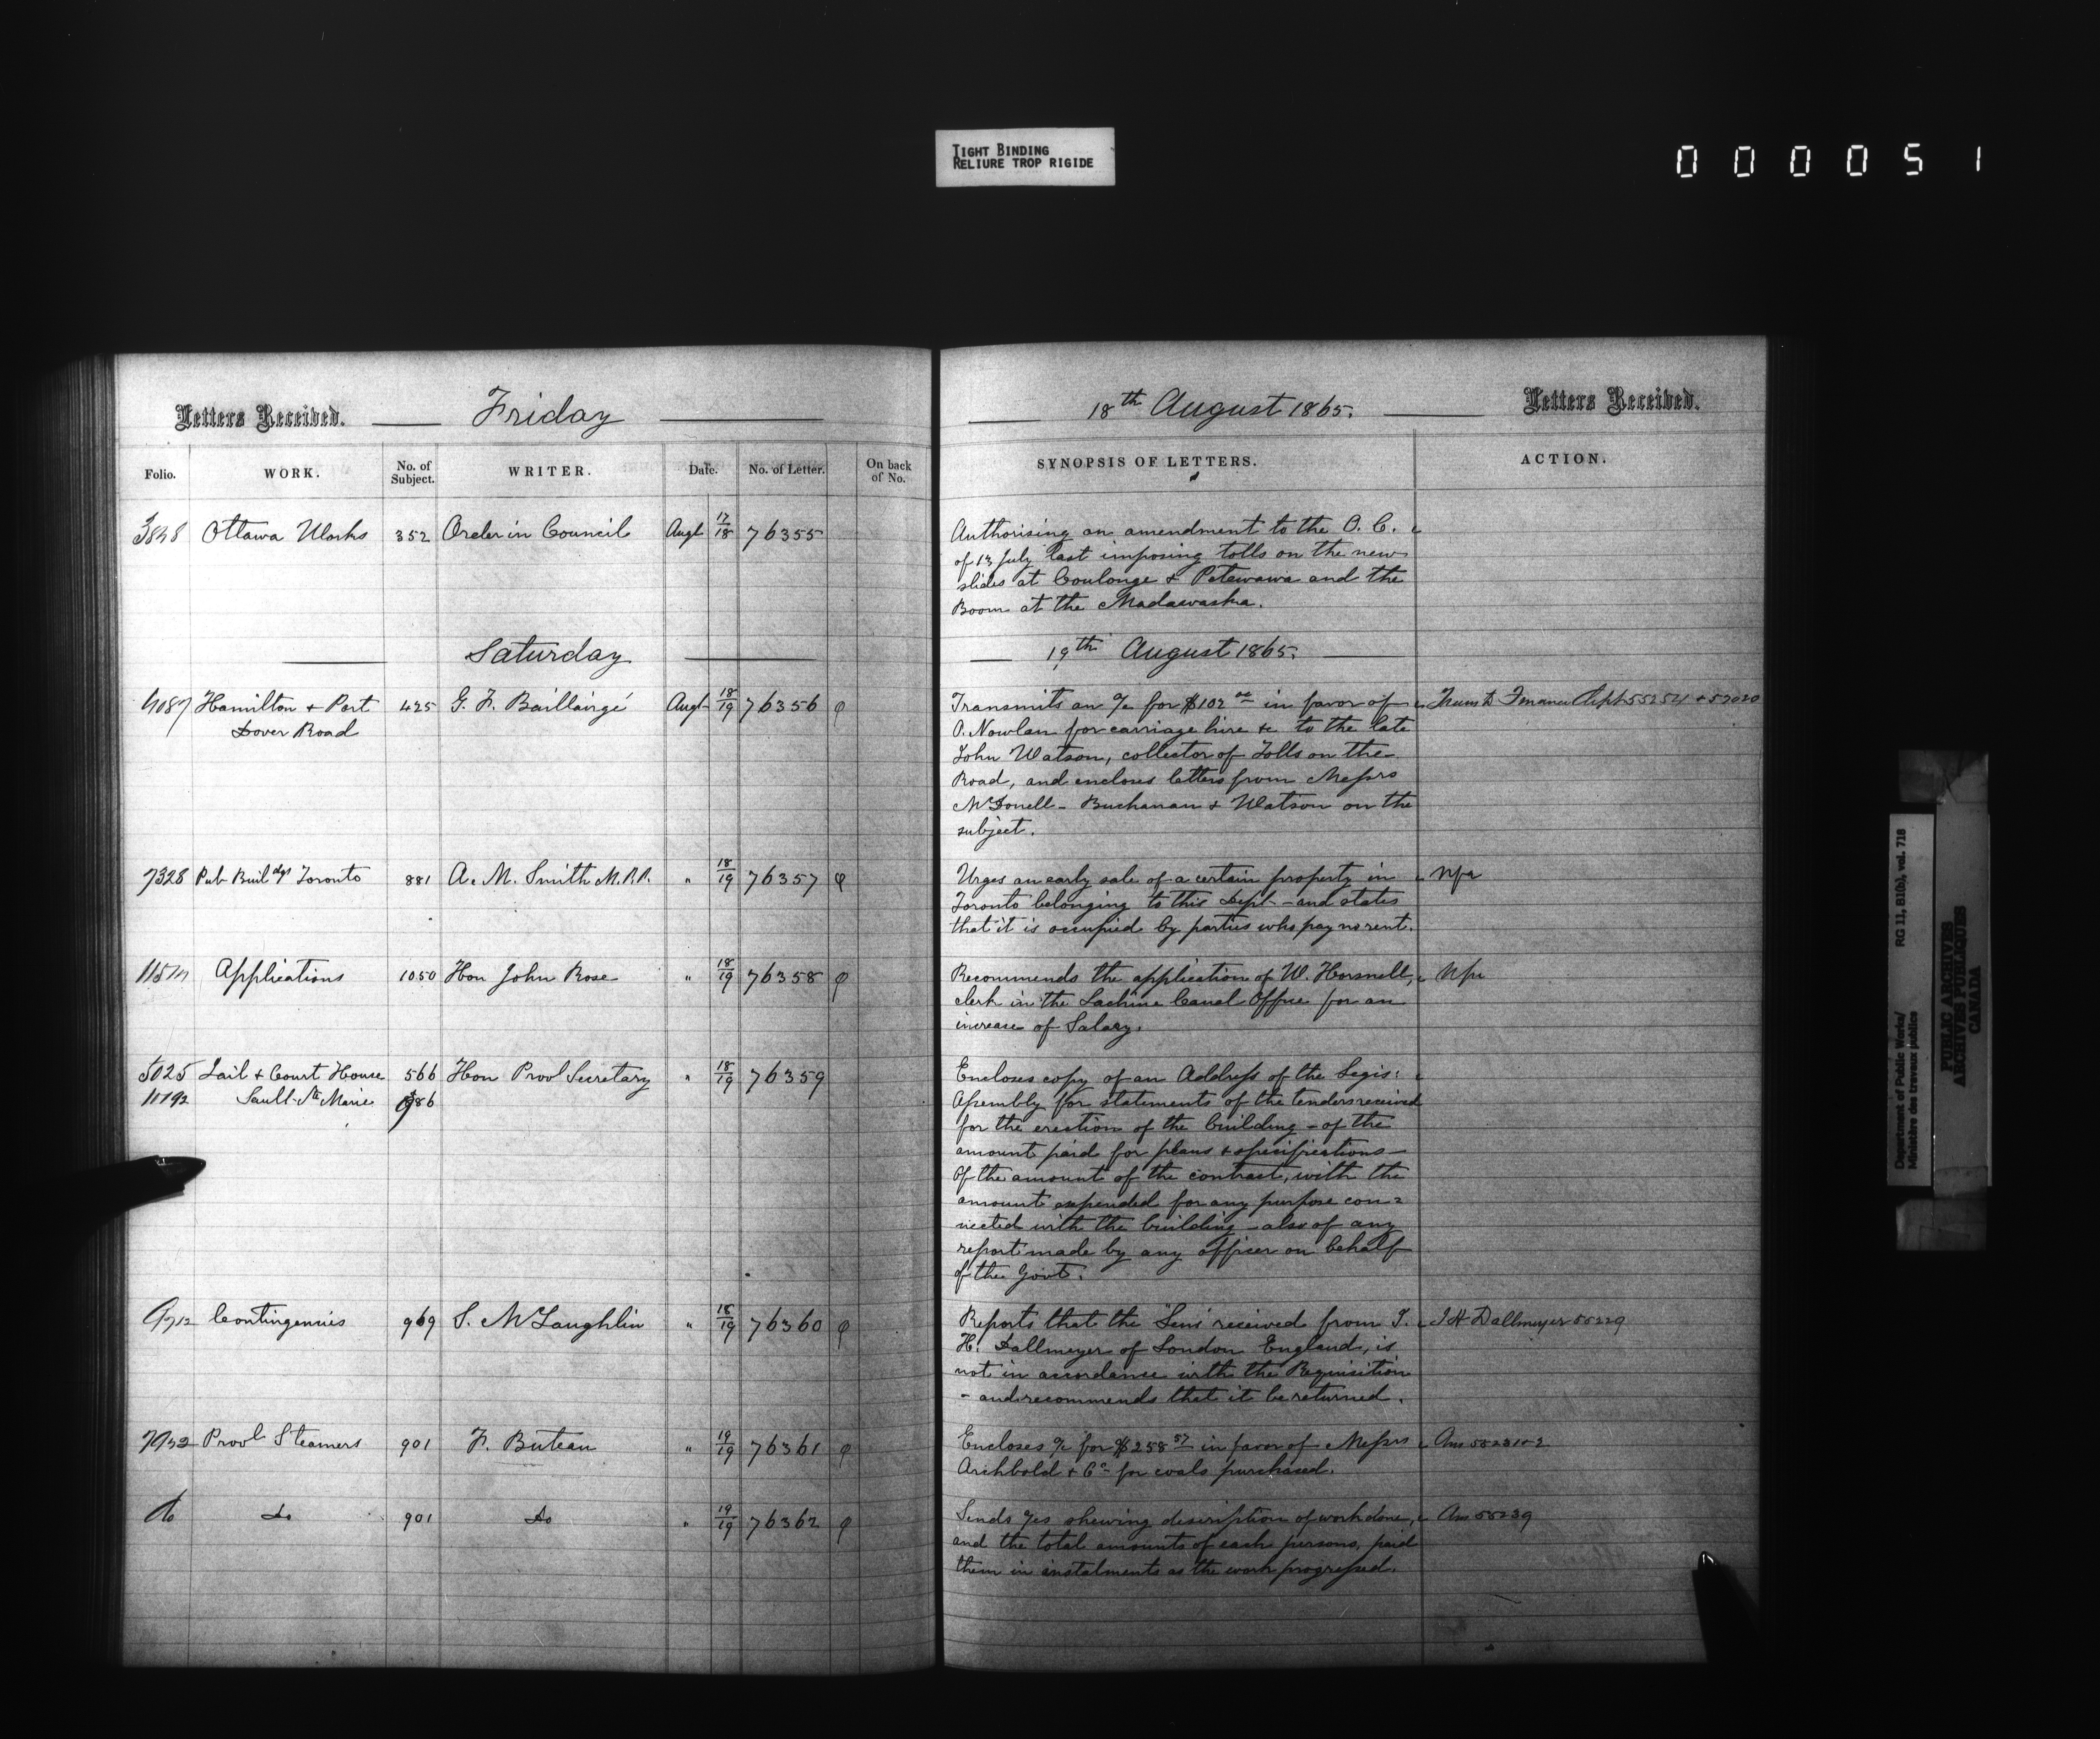 TIGHT BINDING
RELIURE TROP RIGIDE
000051
Letters Received. Friday
Folio. WORK. No. of Subject. WRITER. Date. No. of Letter. On back of No.
Ottawa Works 352 Order in Council Augt 17/18 76355
Saturday
4087 Hamilton + Port 425 G. F. Baillairgé Augt 18/19 76356 φ
Dover Road
7328 Pub Buildgs Toronto 881 A. M. Smith M.P.P. " 18/19 76357 φ
Applications 1050 Hon John Rose " 18/19 76358 φ
5025 Jail + Court House 566 Hon Provl Secretary " 18/19 76359
11192 Sault Ste Marie
Contingencies 969 S. McLaughlin " 18/19 76360 φ
7932 Provl Steamers 901 F. Buteau " 19/19 76361 φ
do Do 901 Do " 19/19 76362 φ
18th August 1865. Letters Received.
SYNOPSIS OF LETTERS. ACTION.
Authorising an amendment to the O. C.
of 13 July last imposing tolls on the new
slides at Coulonge + Petewawa and the
Boom at the Madawaska.
19th August 1865.
Transmits an a/c for $102 in favor of
O. Nowlan for carriage hire &c to the late
John Watson, collector of Tolls on the
Road, and encloses letters from Messrs
McDonell - Buchanan + Watson on the
subject.
Finance Dept 55254 + 57020
Urges an early sale of a certain property in
Toronto belonging to this Dept - and states
that it is occupied by parties who pay no rent.
Nfa
Recommends the application of W. Horsnell,
clerk in the Lachine Canal Office for an
increase of Salary.
Nfa
Encloses copy of an Address of the Legis:
Assembly for statements of the tenders received
for the erection of the building - of the
amount paid for plans + specifications -
Of the amount of the contract, with the
amount expended for any purpose con=
nected with the building - also of any
report made by any officer on behalf
of the Govt.
Reports that the "Lens" received from J.
H. Dallmeyer of London England, is
not in accordance with the Requisition
- and recommends that it be returned.
J H Dallmeyer 55229
Encloses a/c for $258 57 in favor of Messrs
Archbold + Co for coals purchased.
Sends a/cs shewing description of work done,
and the total amounts of each persons, paid
them in instalments as the work progressed.
Ans 55239
Department of Public Works/ RG 11, B1(b), vol. 718
Ministère des travaux publics
PUBLIC ARCHIVES
ARCHIVES PUBLIQUES
CANADA